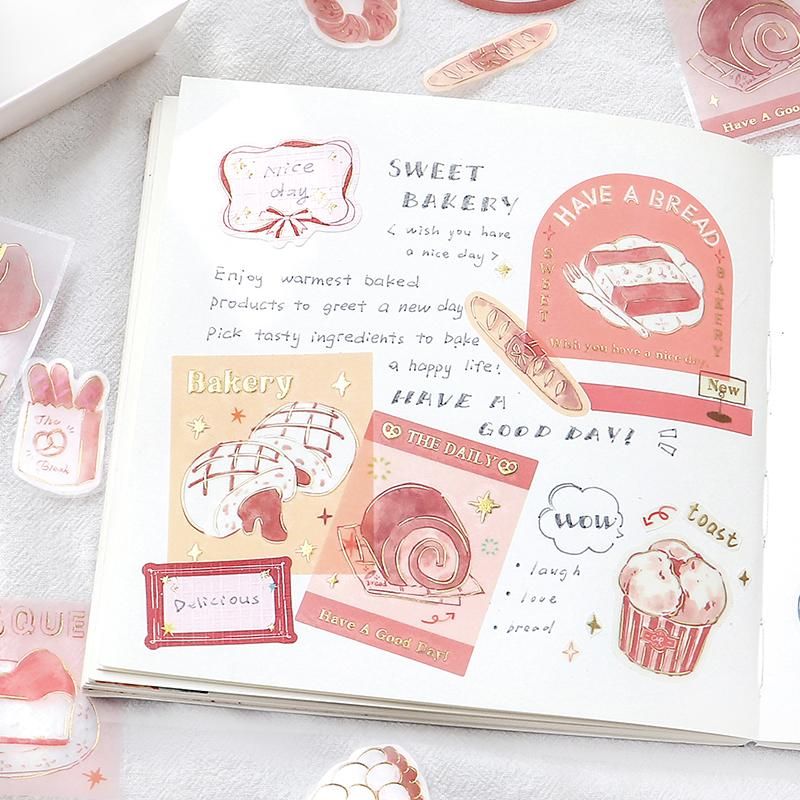 Nice
day
SWEET
BAKERY
< wish you have
a nice day >
Enjoy warmest baked
products to greet a new day
Pick tasty ingredients to bake
a happy life!
HAVE A
GOOD DAY!
HAVE A BREAD
SWEET
BAKERY
Wish you have a nice day.
New
Bakery
THE DAILY
Have A Good Day!
Delicious
WOW
• laugh
• love
• bread
toast
The
Break
SQUE
Have A Good